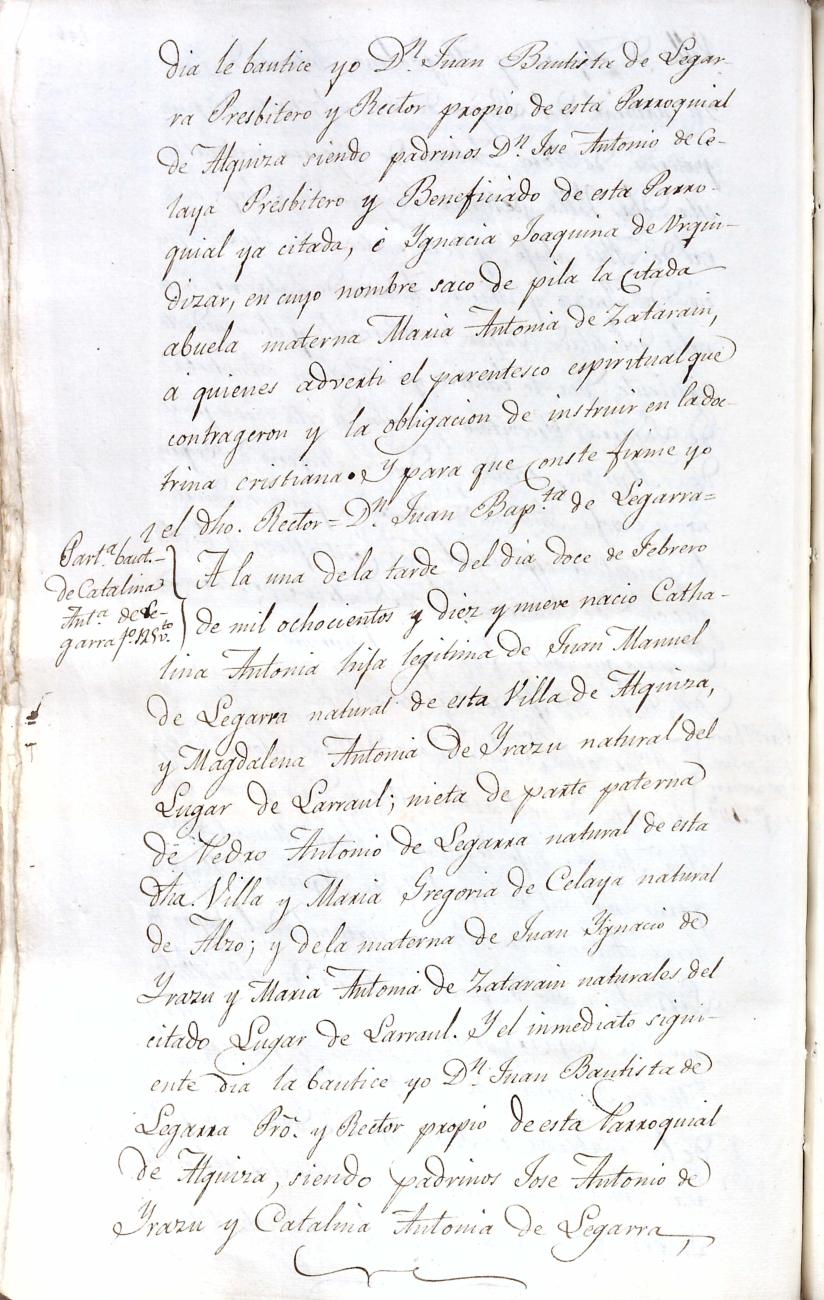 dia le bautice yo Dn. Juan Bautista de Legar-
ra Presbitero y Rector propio de esta Parroquial
de Alquiza siendo padrinos Dn. Jose Antonio de Ce-
laya Presbitero y Beneficiado de esta Parro-
quial ya citada, é Ygnacia Joaquina de Vrqui-
dizar, en cuyo nombre saco de pila la citada
abuela materna Maria Antonia de Zatarain,
á quienes adverti el parentesco espiritual que
contrageron y la obligacion de instruir en la doc-
trina cristiana. Y para que Conste firme yo
el dho. Rector = Dn. Juan Bapta. de Legarra =
Parta. baut.
de Catalina
Anta. de Le-
garra
A la una de la tarde del dia doce de Febrero
de mil ochocientos y diez y nueve nacio Catha-
lina Antonia hija legitima de Juan Manuel
de Legarra natural de esta Villa de Alquiza,
y Magdalena Antonia de Yrazu natural del
Lugar de Larraul; nieta de parte paterna
de Pedro Antonio de Legarra natural de esta
dha. Villa y Maria Gregoria de Celaya natural
de Alzo; y de la materna de Juan Ygnacio de
Yrazu y Maria Antonia de Zatarain naturales del
citado Lugar de Larraul. Y el inmediato sigui-
ente dia la bautice yo Dn. Juan Bautista de
Legarra Pro. y Rector propio de esta Parroquial
de Alquiza, siendo padrinos Jose Antonio de
Yrazu y Catalina Antonia de Legarra,